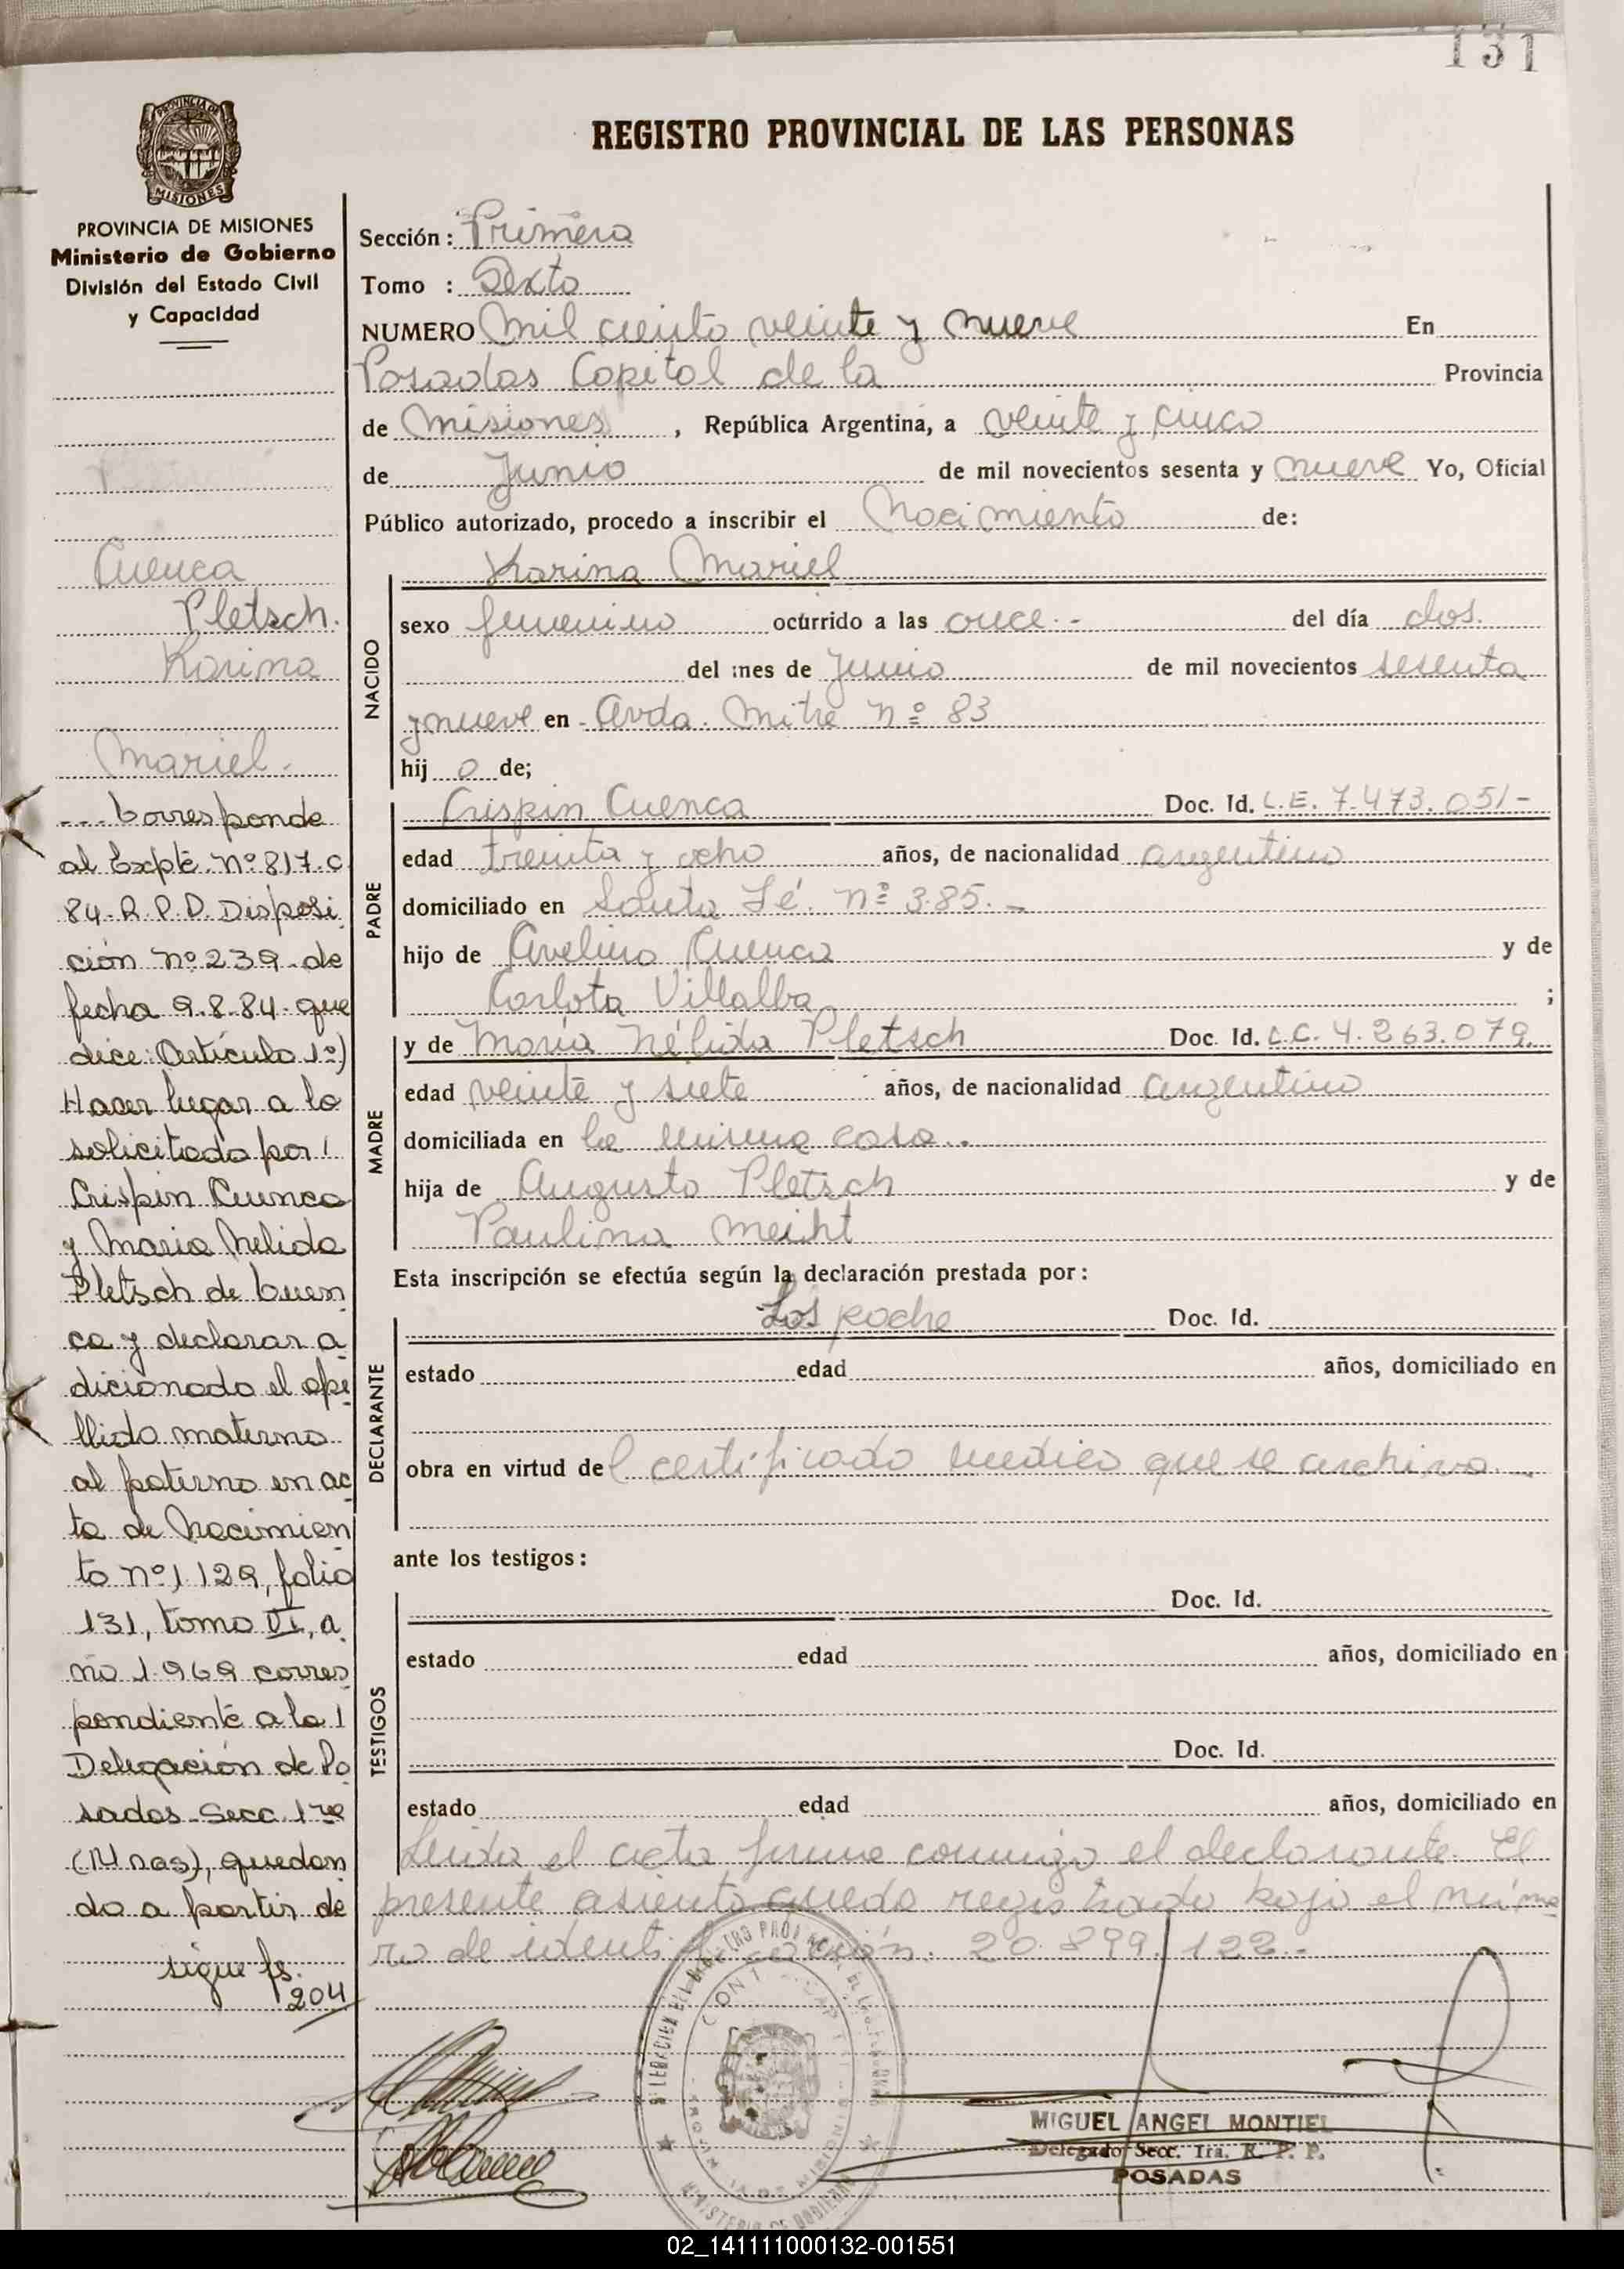 131
REGISTRO PROVINCIAL DE LAS PERSONAS
PROVINCIA DE MISIONES
PROVINCIA DE MISIONES
Ministerio de Gobierno
División del Estado Civil
y Capacidad
Cuenca
Pletsch.
Karina
Mariel.
--- Corresponde
al Expte. Nº 817-C
84-R.P.P. Disposi
ción nº 239 de
fecha 9.8.84 que
dice: Artículo 1º)
Hacer lugar a lo
solicitado por
Crispin Cuenca
y Maria Nelida
Pletsch de Cuen
ca y declarar a
dicionado el ape
llido materno
al paterno en ac
ta de Nacimien
to nº 1129, folio
131, tomo VI, a
ño 1969 corres
pondiente a la
Delegación de Po
sadas Secc. 1ra
quedan
do a partir de
sigue fs.
204
Sección: Primera
Tomo : Sexto
NUMERO Mil ciento veinte y nueve En
Posadas Capital de la Provincia
de Misiones, República Argentina, a veinte y cinco
de Junio de mil novecientos sesenta y nueve Yo, Oficial
Público autorizado, procedo a inscribir el Nacimiento de:
NACIDO
Karina Mariel
sexo femenino ocurrido a las once.- del día dos.
del mes de Junio de mil novecientos sesenta
y nueve en Avda. Mitre nº 83
hij a de;
PADRE
Crispin Cuenca Doc. Id. L.E. 7.473.051-
edad treinta y ocho años, de nacionalidad argentino
domiciliado en Santa Fé. nº 385.-
hijo de Avelino Cuenca y de
Carlota Villalba ;
MADRE
y de María Nélida Pletsch Doc. Id. L.C. 4.263.079.
edad veinte y siete años, de nacionalidad argentina
domiciliada en la misma casa.
hija de Augusto Pletsch y de
Paulina Meiht
Esta inscripción se efectúa según la declaración prestada por:
DECLARANTE
Los Doc. Id.
estado edad años, domiciliado en
obra en virtud del certificado medico que se archiva.-
ante los testigos:
TESTIGOS
Doc. Id.
estado edad años, domiciliado en
Doc. Id.
estado edad años, domiciliado en
Leida el acta firma conmigo el declarante. El
presente asiento queda registrado bajo el núme
ro de identificación. 20.899.122.-
MIGUEL ANGEL MONTIEL
Delegado Secc. 1ra. R. P. P.
POSADAS
02_141111000132-001551